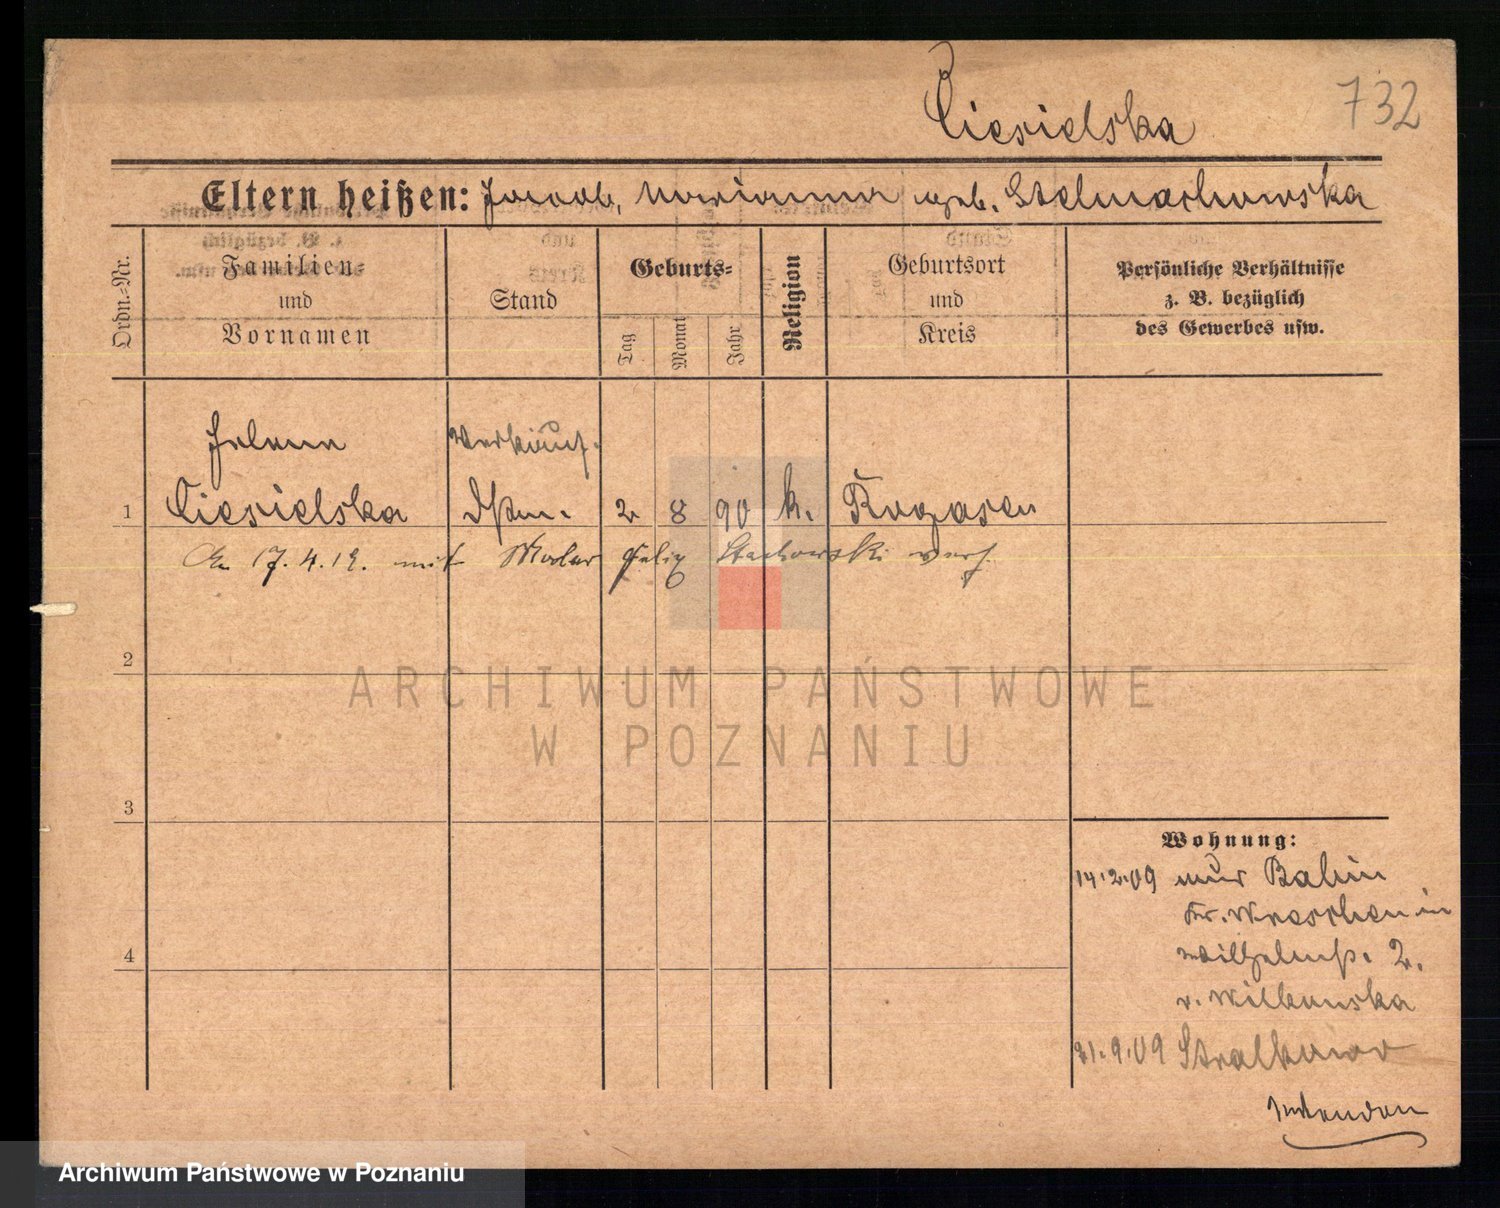 Ciesielska
732
Eltern heißen: Jacob, Marianna geb. Stelmachowska
Ordn.-Nr.
Familien-
und
Vornamen
Stand
Geburts-
Tag
Monat
Jahr
Religion
Geburtsort
und
Kreis
Persönliche Verhältnisse
z. B. bezüglich
des Gewerbes usw.
Helene Verkäuf.
1 Ciesielska 2 8 90 k. Rogasen
17.4.12. mit Maler Felix Stachowski verh.
2
3
4
Wohnung:
14.2.09 aus
Kr. Wreschen in
Wilhelmstr. 2.
v. Wilkonska
21.9.09 Stralkowo
ARCHIWUM PAŃSTWOWE
W POZNANIU
Archiwum Państwowe w Poznaniu